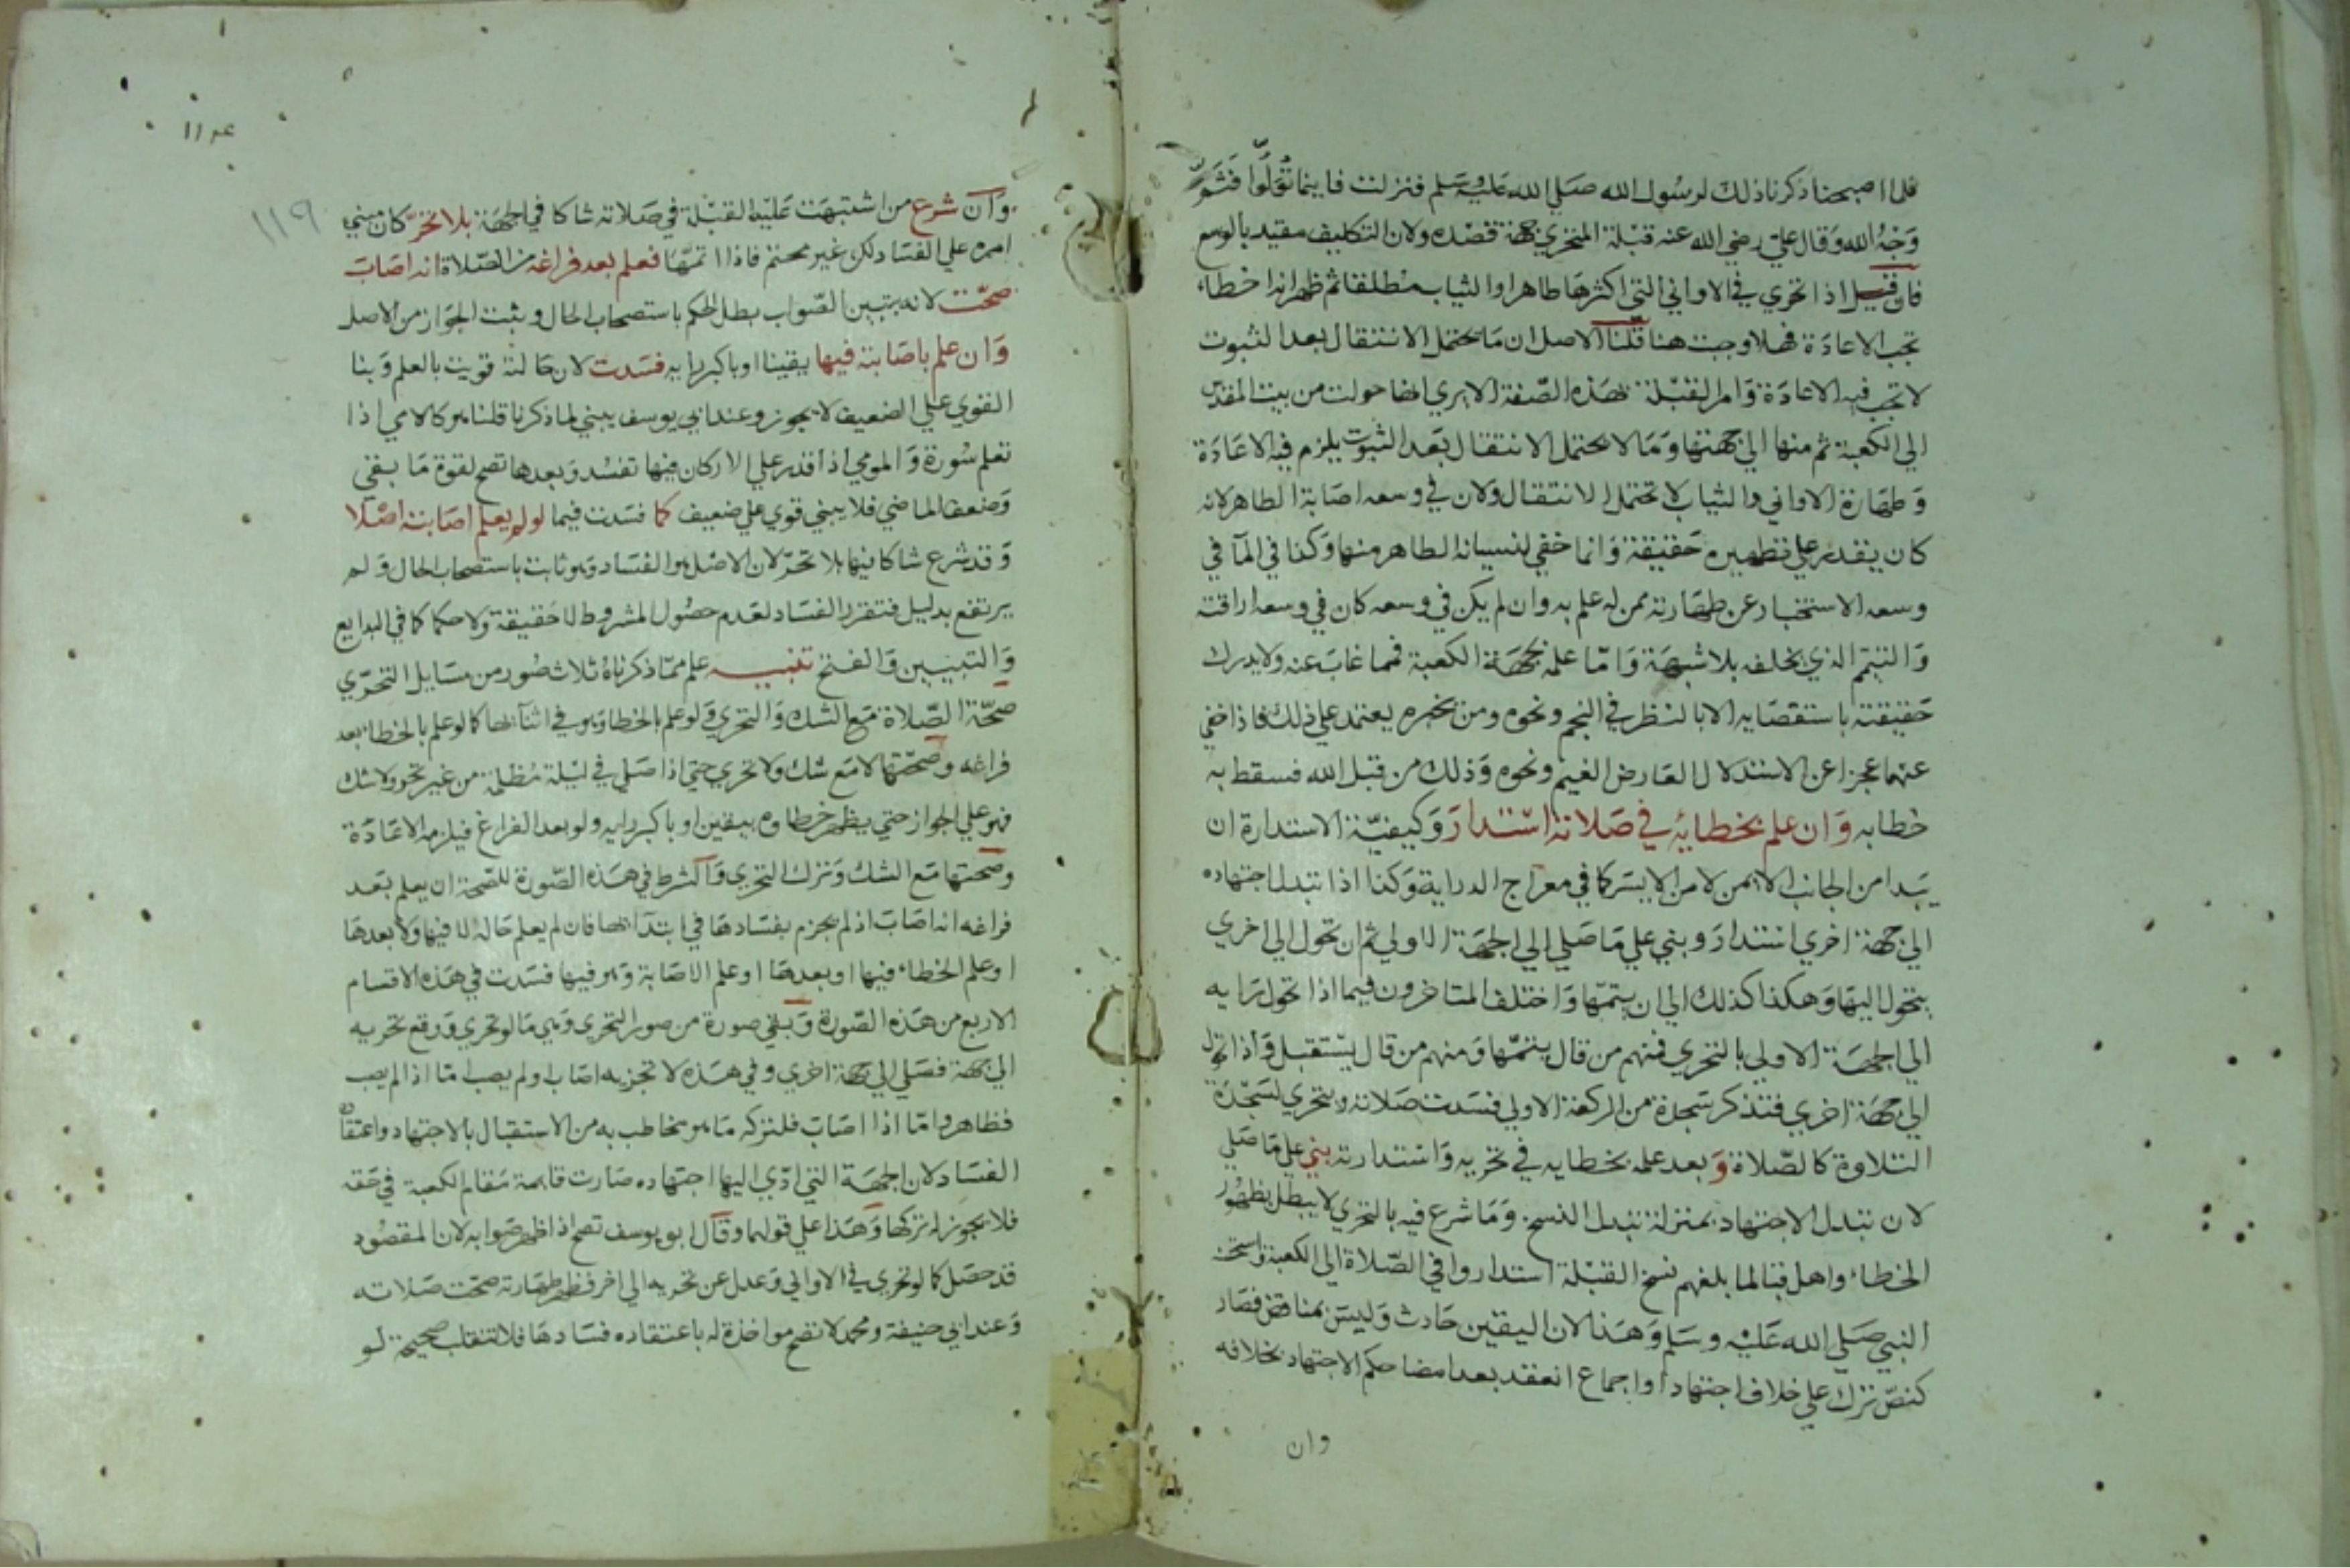 فلما اصبحنا ذكرنا ذلك لرسول الله صلي الله عليه وسلم فنزلت فاينما تولوا فثم
وجه الله وقال علي رضي الله عنه قبلة المتحري جهة قصده ولان التكليف مقيد بالوسع
فان قيل اذا تحري في الاواني التي اكثرها طاهر او الثياب مطلقا ثم ظهر انه اخطاء
تجب الاعادة فهلا وجبت هنا قلنا الاصل ان ما يحتمل الانتقال بعد الثبوت
لا تجب فيه الاعادة وامر القبلة بهذه الصفة الا يري انها حولت من بيت المقدس
الي الكعبة ثم منها الي جهتها وما لا يحتمل الانتقال بعد الثبوت يلزم فيه الاعادة
وطهارة الاواني والثياب لا تحتمل الانتقال ولان في وسعه اصابة الطاهر لانه
كان يقدر علي تطهيره حقيقة وانما خفي لنسيانه الطاهر منها وكذا في الماء في
وسعه الاستخبار عن طهارته ممن له علم به وان لم يكن في وسعه كان في وسعه اراقته
والتيمم الذي يخلفه بلا شبهة واما علمه بجهة الكعبة فمما غاب عنه ولا يدرك
حقيقته باستقصايه الا بالنظر في النجم ونحوه ومن يخبره يعتمد علي ذلك فاذا خفي
عنهما عجزا عن الاستدلال لعارض الغيم ونحوه وذلك من قبل الله فسقط به
خطابه وان علم بخطائه في صلاته استدار وكيفية الاستدارة ان
يبدا من الجانب الايمن لا من الايسر كما في معراج الدراية وكذا اذا تبدل اجتهاده
الي جهة اخري استدار وبني علي ما صلي الي الجهة الاولي ثم ان تحول الي اخري
يتحول اليها وهكذا كذلك الي ان يتمها واختلف المتاخرون فيما اذا تحول رايه
الي الجهة الاولي بالتحري فمنهم من قال يتمها ومنهم من قال يستقبل واذا تحول
الي جهة اخري فتذكر سجدة من الركعة الاولي فسدت صلاته ويتحري لسجدة
التلاوة كالصلاة و بعد علمه بخطايه في تحريه واستدارته بني علي ما صلي
لان تبدل الاجتهاد بمنزلة تبدل النسخ وما شرع فيه بالتحري لا يبطل بظهور
الخطاء واهل قبا لما بلغهم نسخ القبلة استداروا في الصلاة الي الكعبة واستحسنه
النبي صلي الله عليه وسلم وهذا لان اليقين حادث وليس بمناقض فصار
كنص نزل علي خلاف اجتهاد او اجماع انعقد بعد امضا حكم الاجتهاد بخلافه
وان
١١٩
وان شرع من اشتبهت عليه القبلة في صلاته شاكا في الجهة بلا تحر كان مبني
امره علي الفساد لكن غير محتم فاذا اتمها فعلم بعد فراغه من الصلاة انه اصاب
صحت لانه بتبين الصواب بطل الحكم باستصحاب الحال وثبت الجواز من الاصل
وان علم باصابته فيها يقينا او باكبر رايه فسدت لان حالته قويت بالعلم وبنا
القوي علي الضعيف لا يجوز وعند ابي يوسف يبني لما ذكرنا قلنا هو كالامي اذا
تعلم سورة والمومي اذا قدر علي الاركان فيها تفسد وبعدها تصح لقوة ما بقي
وضعف الماضي فلا يبني قوي علي ضعيف كما فسدت فيما لو لم يعلم اصابته اصلا
وقد شرع شاكا فيها بلا تحر لان الاصل هو الفساد وهو ثابت باستصحاب الحال ولم
يرتفع بدليل فتقرر الفساد لعدم حصول المشروط لا حقيقة ولا حكما كما في البدايع
والتبيين والفتح تنبيه علم مما ذكرناه ثلاث صور من مسايل التحري
صحة الصلاة مع الشك والتحري ولو علم بالخطا وهو في اثنائها كما لو علم بالخطاء بعد
فراغه وصحتها لا مع شك ولا تحري حتي اذا صلي في ليلة مظلمة من غير تحر ولا شك
فهو علي الجواز حتي يظهر خطاوه بيقين او باكبر رايه ولو بعد الفراغ فيلزمه الاعادة
وصحتها مع الشك وترك التحري والشرط في هذه الصورة للصحة ان يعلم بعد
فراغه انه اصاب اذ لم يجزم بفسادها في ابتدائها فان لم يعلم حاله لا فيها ولا بعدها
او علم الخطاء فيها او بعدها او علم الاصابة وهو فيها فسدت في هذه الاقسام
الاربع من هذه الصورة وبقي صورة من صور التحري وهي ما لو تحري ووقع تحريه
الي جهة فصلي الي جهة اخري وفي هذه لا تجزيه اصاب او لم يصب اما اذا لم يصب
فظاهر واما اذا اصاب فلتركه ما هو مخاطب به من الاستقبال بالاجتهاد واعتقاده
الفساد لان الجهة التي ادي اليها اجتهاده صارت قايمة مقام الكعبة في حقه
فلا يجوز له تركها وهذا علي قولهما وقال ابو يوسف تصح اذا ظهر صوابه لان المقصود
قد حصل كما لو تحري في الاواني وعدل عن تحريه الي اخر فظهر طهارته صحت صلاته
وعند ابي حنيفة ومحمد لا تصح مواخذة له باعتقاده فسادها فلا تنقلب صحيحة لو